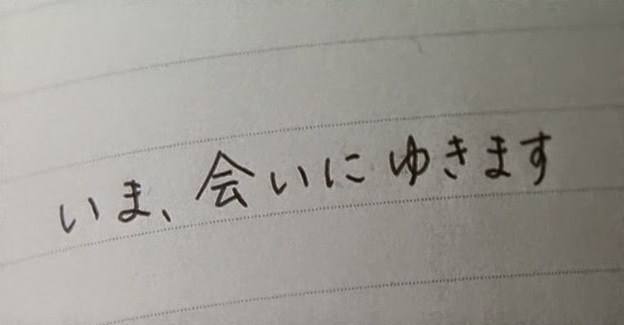 いま、会いにゆきます